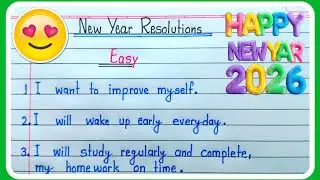 New Year Resolutions
Easy
HAPPY
NEWYAR
2026
1. I want to improve myself.
2. I will wake up early everyday.
3. I will study regularly and complete,
my homework on time.